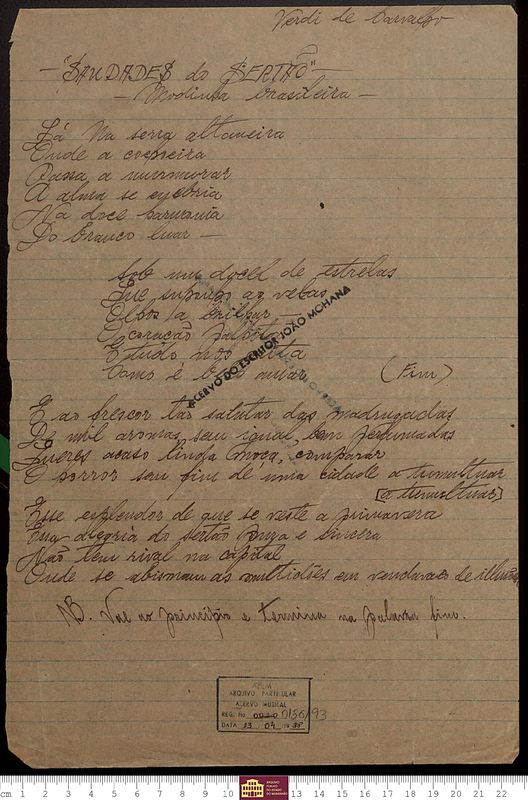 Verdi de Carvalho
— "SAUDADES do SERTÃO" —
— Modinha brasileira —
Lá na serra altaneira
Onde a cachoeira
Passa a murmurar
A alma se enebria
Na doce harmonia
Do branco luar —
Sob um docel de estrelas
Que supomos ao vê-las
Olhos a brilhar —
O coração palpita
E tudo nos
Como é bom amar (Fim)
E ao frescor tão salutar das madrugadas
De mil aromas, sem igual, bem perfumadas
Queres acaso linda moça, comparar
O horror sem fim de uma cidade a tumultuar
(a tumultuar)
Esse esplendor de que se veste a primavera
Essa alegria do sertão pura e sincera
Não tem rival na capital
Onde se abismam as multidões em vendavaes de illusões
NB. Vae ao principio e termina na palavra fim.
ACERVO DO ESCRITOR JOÃO MOHANA
APEM
ARQUIVO PARTICULAR
ACERVO MUSICAL
REG. No 0186/93
DATA 13 04
cm 1 2 3 4 5 6 7 8 9 10 11 12 13 14 15 16 17 18 19 20 21 22
ARQUIVO PÚBLICO DO ESTADO DO MARANHÃO